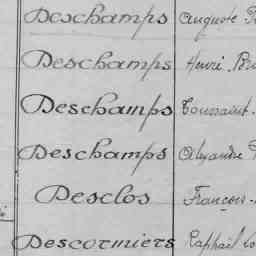 Deschamps Auguste
Deschamps Henri
Deschamps Toussaint
Deschamps Alexandre
Desclos François
Descormiers Raphaël